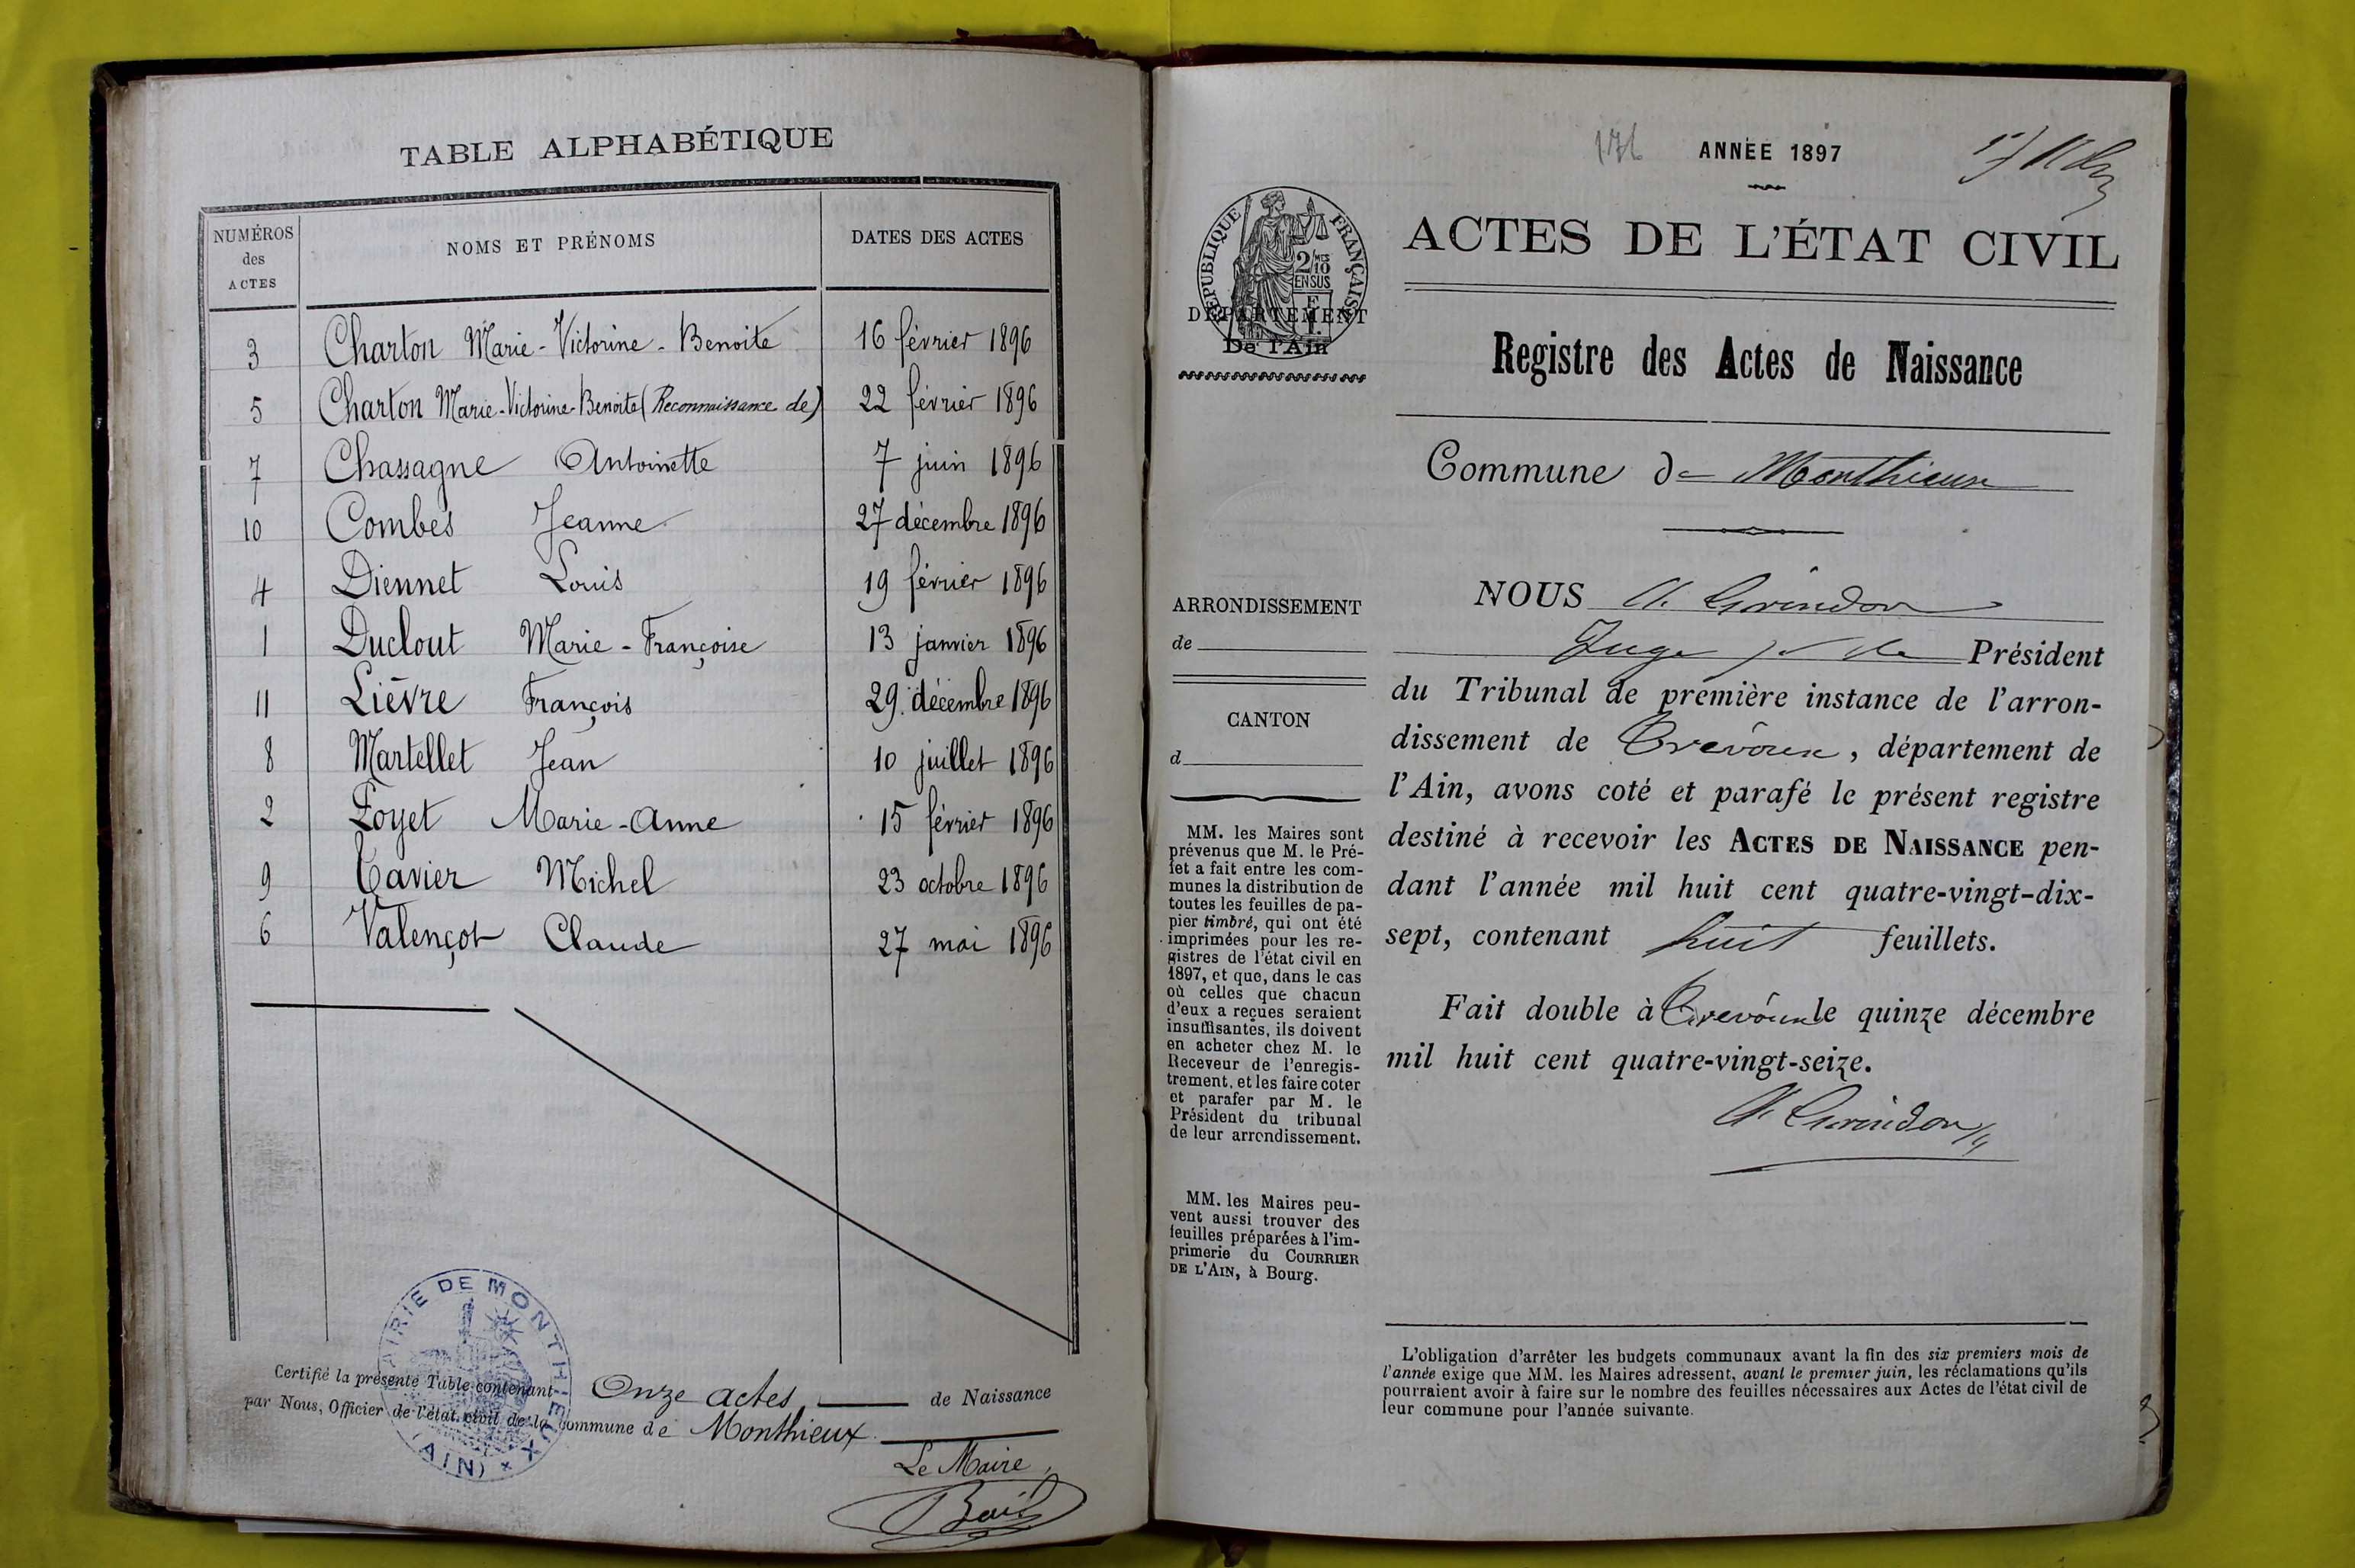 TABLE ALPHABÉTIQUE
NUMÉROS
des
ACTES
NOMS ET PRÉNOMS
DATES DES ACTES
3 Charton Marie-Victorine-Benoite 16 février 1896
5 Charton Marie-Victorine-Benoite (Reconnaissance de) 22 février 1896
7 Chassagne Antoinette 7 juin 1896
10 Combes Jeanne 27 décembre 1896
4 Diennet Louis 19 février 1896
1 Duclout Marie-Françoise 13 janvier 1896
11 Lièvre François 29 décembre 1896
8 Martellet Jean 10 juillet 1896
2 Foyet Marie-Anne 15 février 1896
9 Tavier Michel 23 octobre 1896
6 Valençot Claude 27 mai 1896
MAIRIE DE MONTHIEUX
(AIN)
Certifié la présente Table contenant Onze actes de Naissance
par Nous, Officier de l'état civil de la commune de Monthieux.
Le Maire,
176
ANNÉE 1897
RÉPUBLIQUE FRANÇAISE
2/10MES
EN SUS
DÉPARTEMENT
De l'Ain
ACTES DE L'ÉTAT CIVIL
Registre des Actes de Naissance
Commune de Monthieux
ARRONDISSEMENT
de
CANTON
d
MM. les Maires sont
prévenus que M. le Pré-
fet a fait entre les com-
munes la distribution de
toutes les feuilles de pa-
pier timbré, qui ont été
imprimées pour les re-
gistres de l'état civil en
1897, et que, dans le cas
où celles que chacun
d'eux a reçues seraient
insuffisantes, ils doivent
en acheter chez M. le
Receveur de l'enregis-
trement, et les faire coter
et parafer par M. le
Président du tribunal
de leur arrondissement.
MM. les Maires peu-
vent aussi trouver des
feuilles préparées à l'im-
primerie du COURRIER
DE L'AIN, à Bourg.
NOUS A. Grindon
Juge Président
du Tribunal de première instance de l'arron-
dissement de Trévoux, département de
l'Ain, avons coté et parafé le présent registre
destiné à recevoir les ACTES DE NAISSANCE pen-
dant l'année mil huit cent quatre-vingt-dix-
sept, contenant huit feuillets.
Fait double à Trévoux le quinze décembre
mil huit cent quatre-vingt-seize.
A. Grindon
L'obligation d'arrêter les budgets communaux avant la fin des six premiers mois de
l'année exige que MM. les Maires adressent, avant le premier juin, les réclamations qu'ils
pourraient avoir à faire sur le nombre des feuilles nécessaires aux Actes de l'état civil de
leur commune pour l'année suivante.